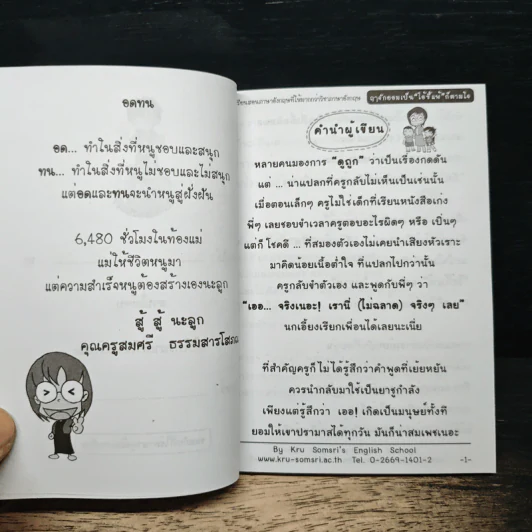 อดทน
อด... ทำในสิ่งที่หนูชอบและสนุก
ทน... ทำในสิ่งที่หนูไม่ชอบและไม่สนุก
แต่อดและทนจะนำหนูสู่ฝั่งฝัน
6,480 ชั่วโมงในท้องแม่
แม่ให้ชีวิตหนูมา
แต่ความสำเร็จหนูต้องสร้างเองนะลูก
สู้ สู้ นะลูก
คุณครูสมศรี ธรรมสารโสภณ
คำนำผู้เขียน
หลายคนมองการ "ดูถูก" ว่าเป็นเรื่องกดดัน
แต่ ... น่าแปลกที่ครูกลับไม่เห็นเป็นเช่นนั้น
เมื่อตอนเล็กๆ ครูไม่ใช่เด็กที่เรียนหนังสือเก่ง
พี่ๆ เลยชอบขำเวลาครูตอบอะไรผิดๆ หรือ เปิ่นๆ
แต่ก็ โชคดี ... ที่สมองตัวเองไม่เคยนำเสียงหัวเราะ
มาคิดน้อยเนื้อต่ำใจ ที่แปลกไปกว่านั้น
ครูกลับขำตัวเอง และพูดกับพี่ๆ ว่า
"เออ... จริงเนอะ! เรานี่ (ไม่ฉลาด) จริงๆ เลย"
นกเอี้ยงเรียกเพื่อนได้เลยนะเนี่ย
ที่สำคัญครูก็ ไม่ได้รู้สึกว่าคำพูดที่เย้ยหยัน
ควรนำกลับมาใช้เป็นยาชูกำลัง
เพียงแต่รู้สึกว่า เออ! เกิดเป็นมนุษย์ทั้งที
ยอมให้เขาปรามาสได้ทุกวัน มันก็น่าสมเพชเนอะ
By Kru Somsri's English School
www.kru-somsri.ac.th Tel. 0-2669-1401-2 -1-